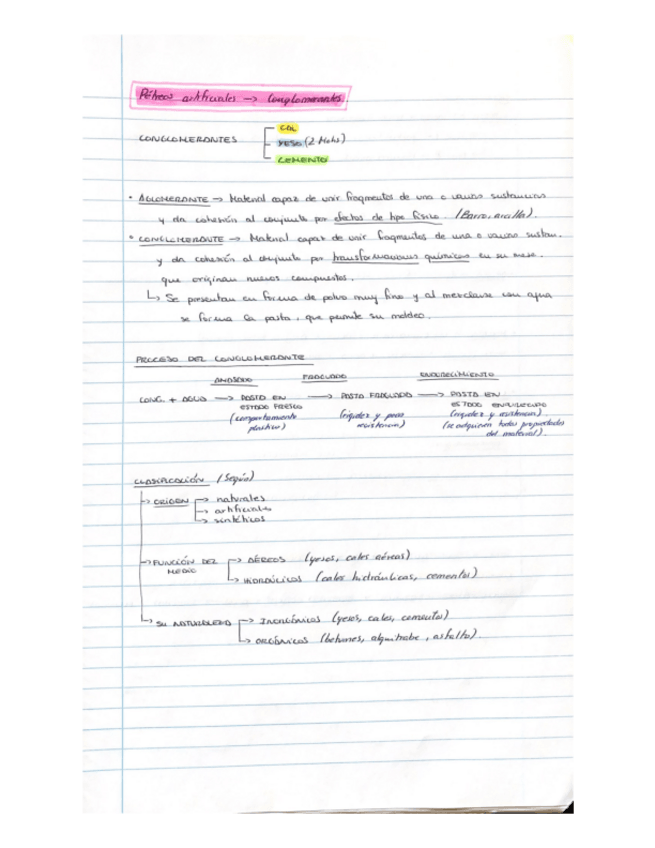 Pétreos artificiales → Conglomerantes
CONGLOMERANTES
CAL
YESO (2 Mohs)
CEMENTO
• AGLOMERANTE → Material capaz de unir fragmentos de una o varias sustancias
y da cohesión al conjunto por efectos de tipo físico. (Barro, arcilla).
• CONGLOMERANTE → Material capaz de unir fragmentos de una o varias sustan.
y da cohesión al conjunto por transformaciones químicas en su masa.
que originan nuevos compuestos.
↳ Se presentan en forma de polvo muy fino y al mezclarse con agua
se forma la pasta, que permite su moldeo.
PROCESO DEL CONGLOMERANTE
AMASADO FRAGUADO ENDURECIMIENTO
CONG. + AGUA → PASTA EN → PASTA FRAGUADA → PASTA EN
ESTADO FRESCO ESTADO ENDURECIDO
(comportamiento (rigidez y poca (rigidez y resistencia).
plástico) resistencia) (se adquieren todas propiedades
del material).
CLASIFICACIÓN (Según)
→ ORIGEN → naturales
→ artificiales
→ sintéticos
→ FUNCIÓN DEL → AÉREOS (yesos, cales aéreas)
MEDIO
→ HIDRÁULICOS (cales hidráulicas, cementos)
↳ SU NATURALEZA → INORGÁNICOS (yesos, cales, cementos)
↳ ORGÁNICOS (betunes, alquitrabe, asfalto).